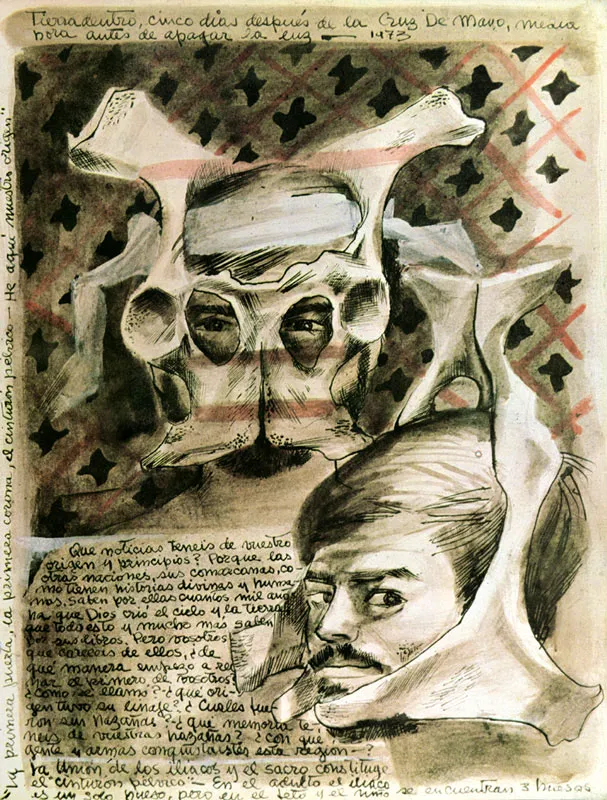 Tierradentro, cinco días después de la Cruz De Mayo, media
hora antes de apagar la luz — 1973
y primera puerta, la primera corona, el cinturón pélvico — He aquí nuestro origen"
Que noticias teneis de vuestro
origen y principios? Porque las
otras naciones, sus comarcanas, co-
mo tienen historias divinas y huma
nas, saben por ellas cuantos mil años
ha que Dios crió el cielo y la tierra
que todo esto y mucho más saben
por sus libros. Pero vosotros
que careceis de ellos, ¿de
qué manera empezo a rei
nar el primero de vosotros?
¿como se llamó? ¿qué ori-
gen tuvo su linaje? ¿Cuales fue-
ron sus hazañas? ¿qué memoria te-
neis de vuestras hazañas? ¿con qué
gente y armas conquistasteis esta region—?
La union de los iliacos y el sacro constituye
el "cinturón pélvico" — En el adulto el iliaco
es un solo hueso, pero en el feto y el niño se encuentran 3 huesos